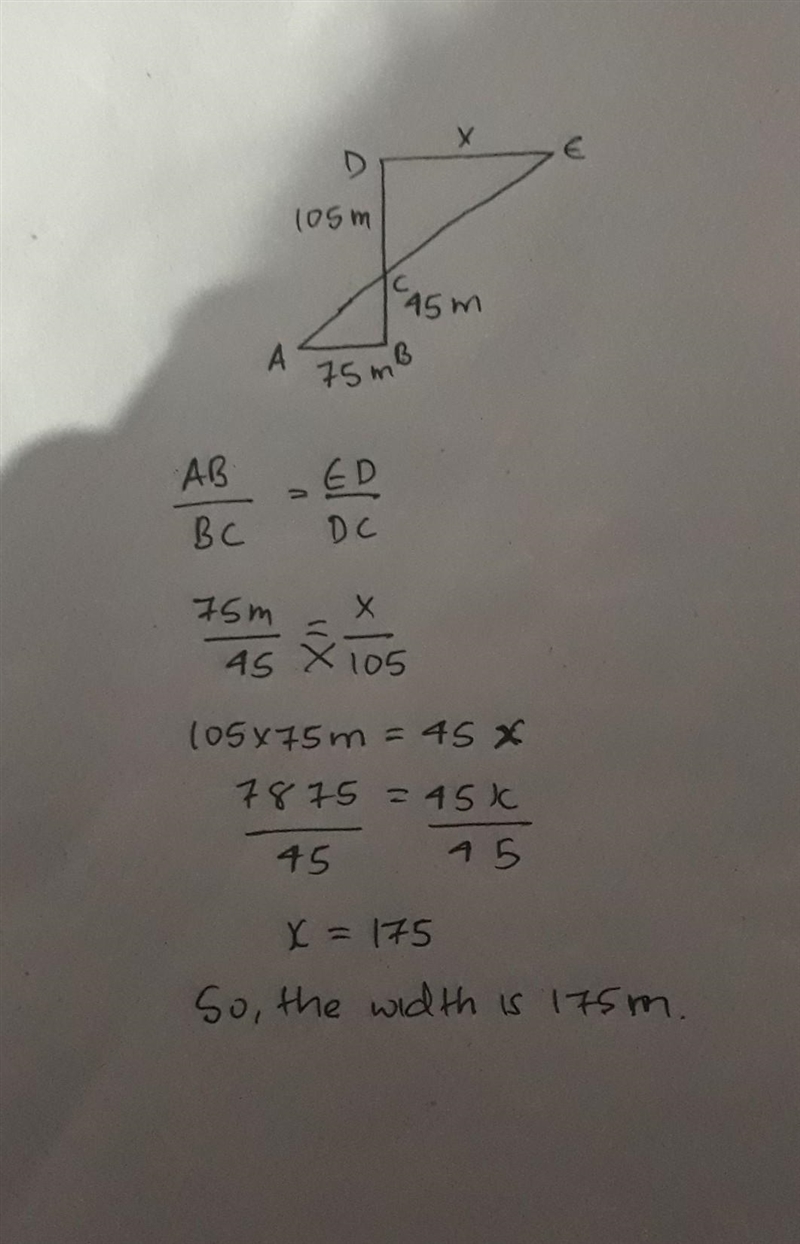 x
D E
105m
C
45m
A B
75m
AB/BC = ED/DC
75m/45 = x/105
X
105x75m = 45x
7875/45 = 45x/45
x = 175
So, the width is 175m.